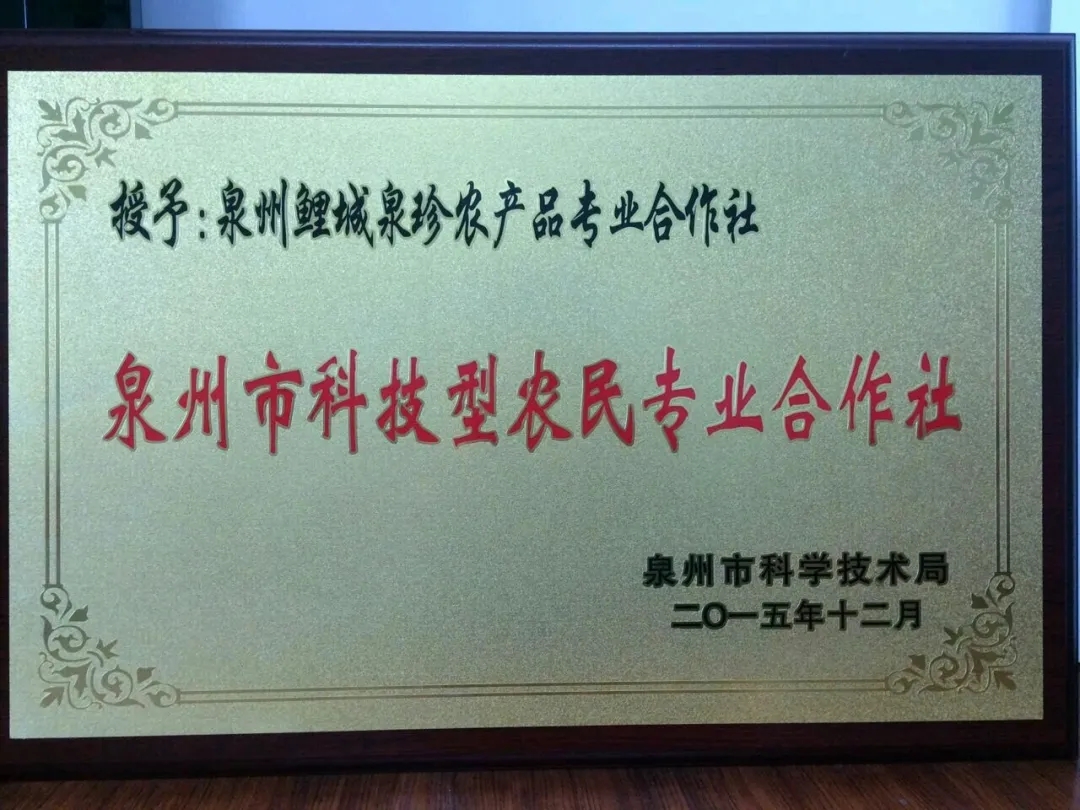 授予:泉州鲤城泉珍农产品专业合作社
泉州市科技型农民专业合作社
泉州市科学技术局
二〇一五年十二月